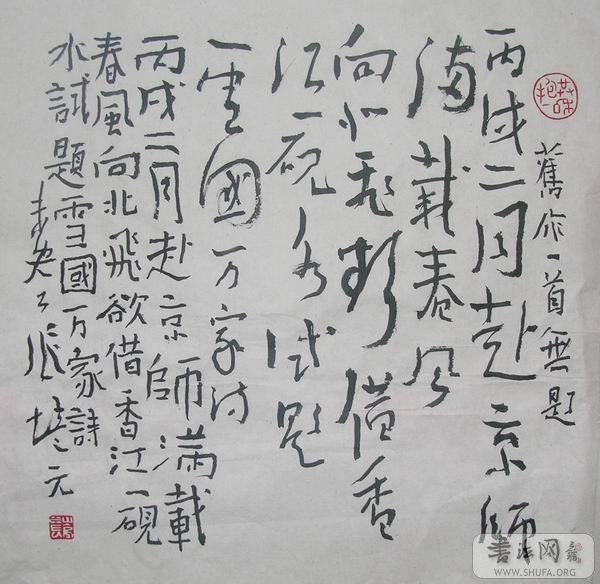 舊作一首無題
丙戌二月赴京師
滿載春風
向北飛欲借香
江一硯水試題
雪國万家詩
丙戌二月赴京師滿載
春風向北飛欲借香江一硯
水試題雪國万家詩
元
書法网
WWW.SHUFA.ORG